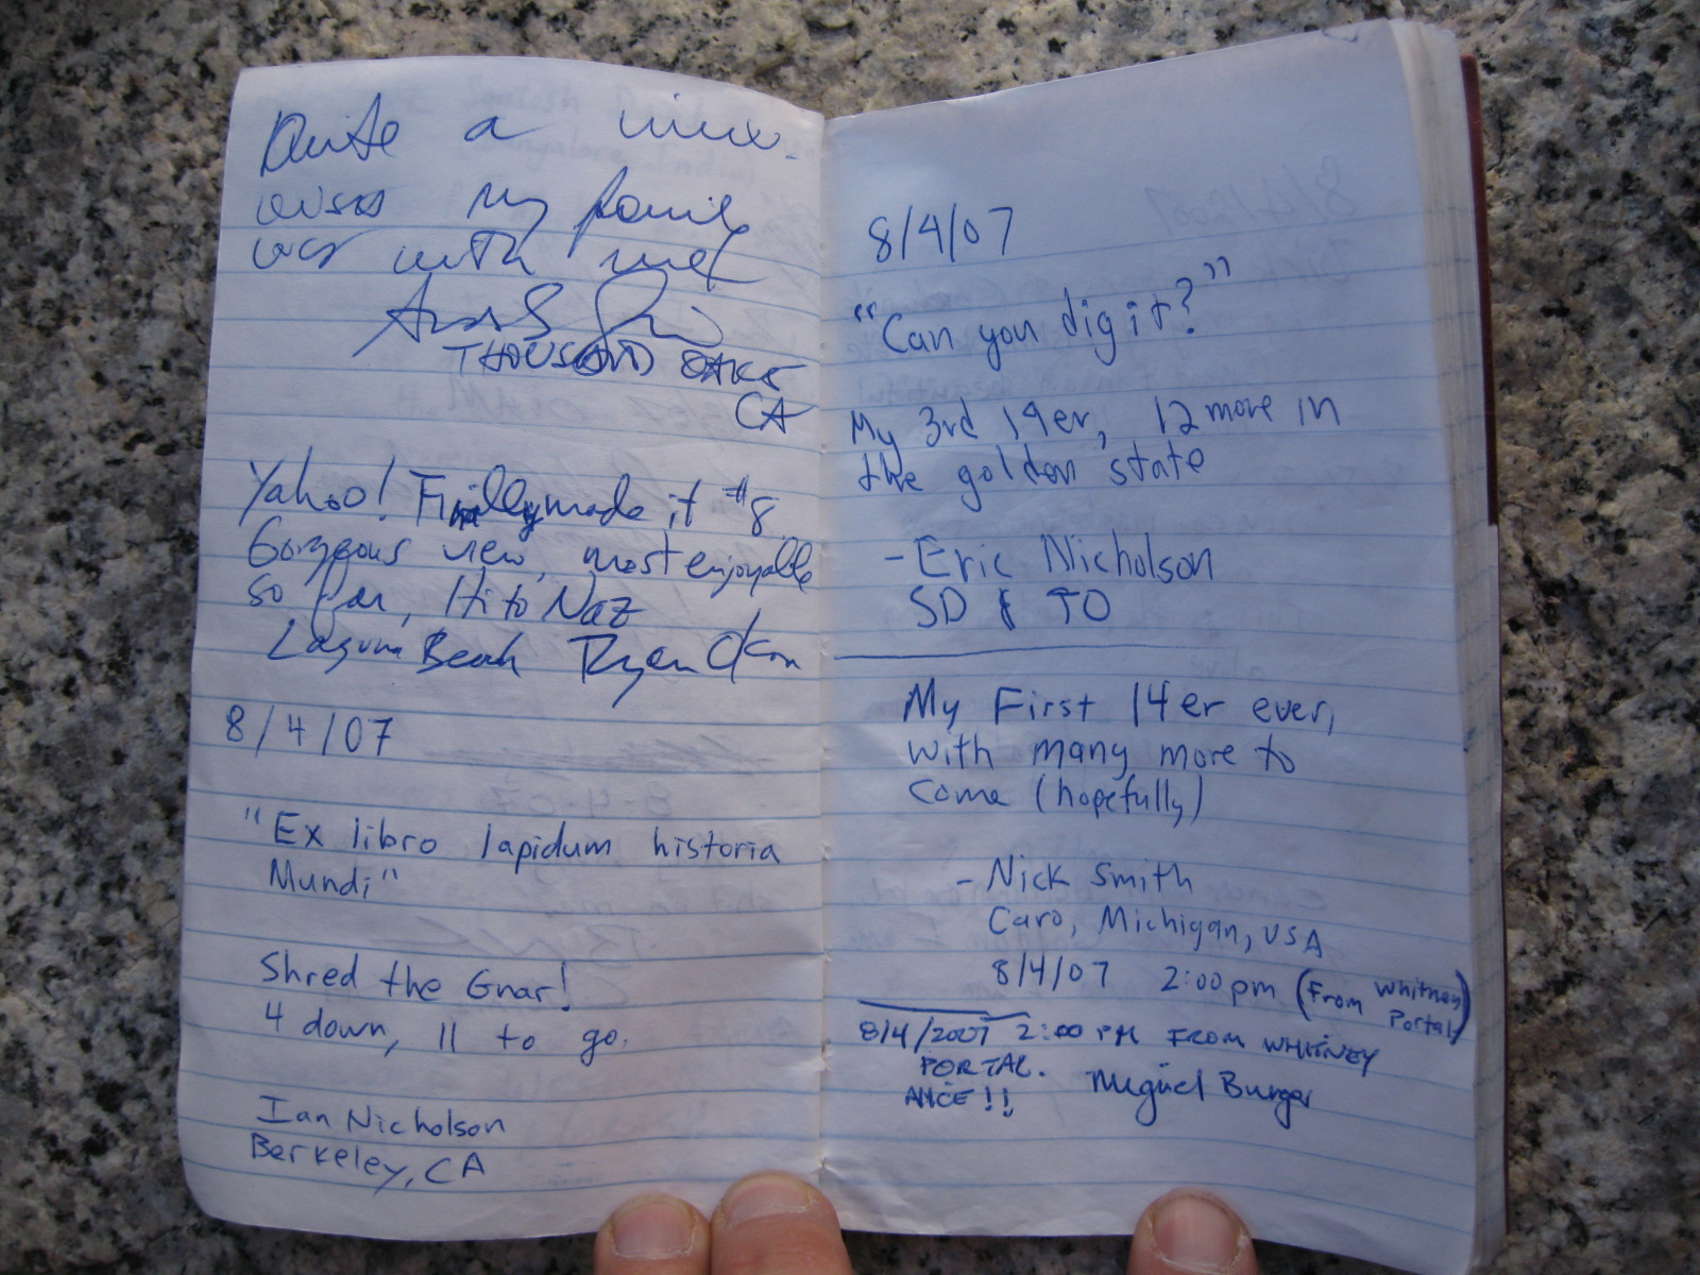 Quite a view.
my family
was with me
THOUSAND OAKS
CA
Yahoo! Finally made it #8
Gorgeous view, most enjoyable
so far, Hi to Naz
Laguna Beach Ryan
8/4/07
"Ex libro lapidum historia
Mundi"
Shred the Gnar!
4 down, 11 to go.
Ian Nicholson
Berkeley, CA
8/4/07
"Can you dig it?"
My 3rd 14er, 12 more in
the golden state
- Eric Nicholson
SD & TO
My First 14er ever,
with many more to
come (hopefully)
- Nick Smith
Caro, Michigan, USA
8/4/07 2:00 pm (From Whitney
Portal)
8/4/2007 2:00 PM FROM WHITNEY
PORTAL.
Miguel Burger